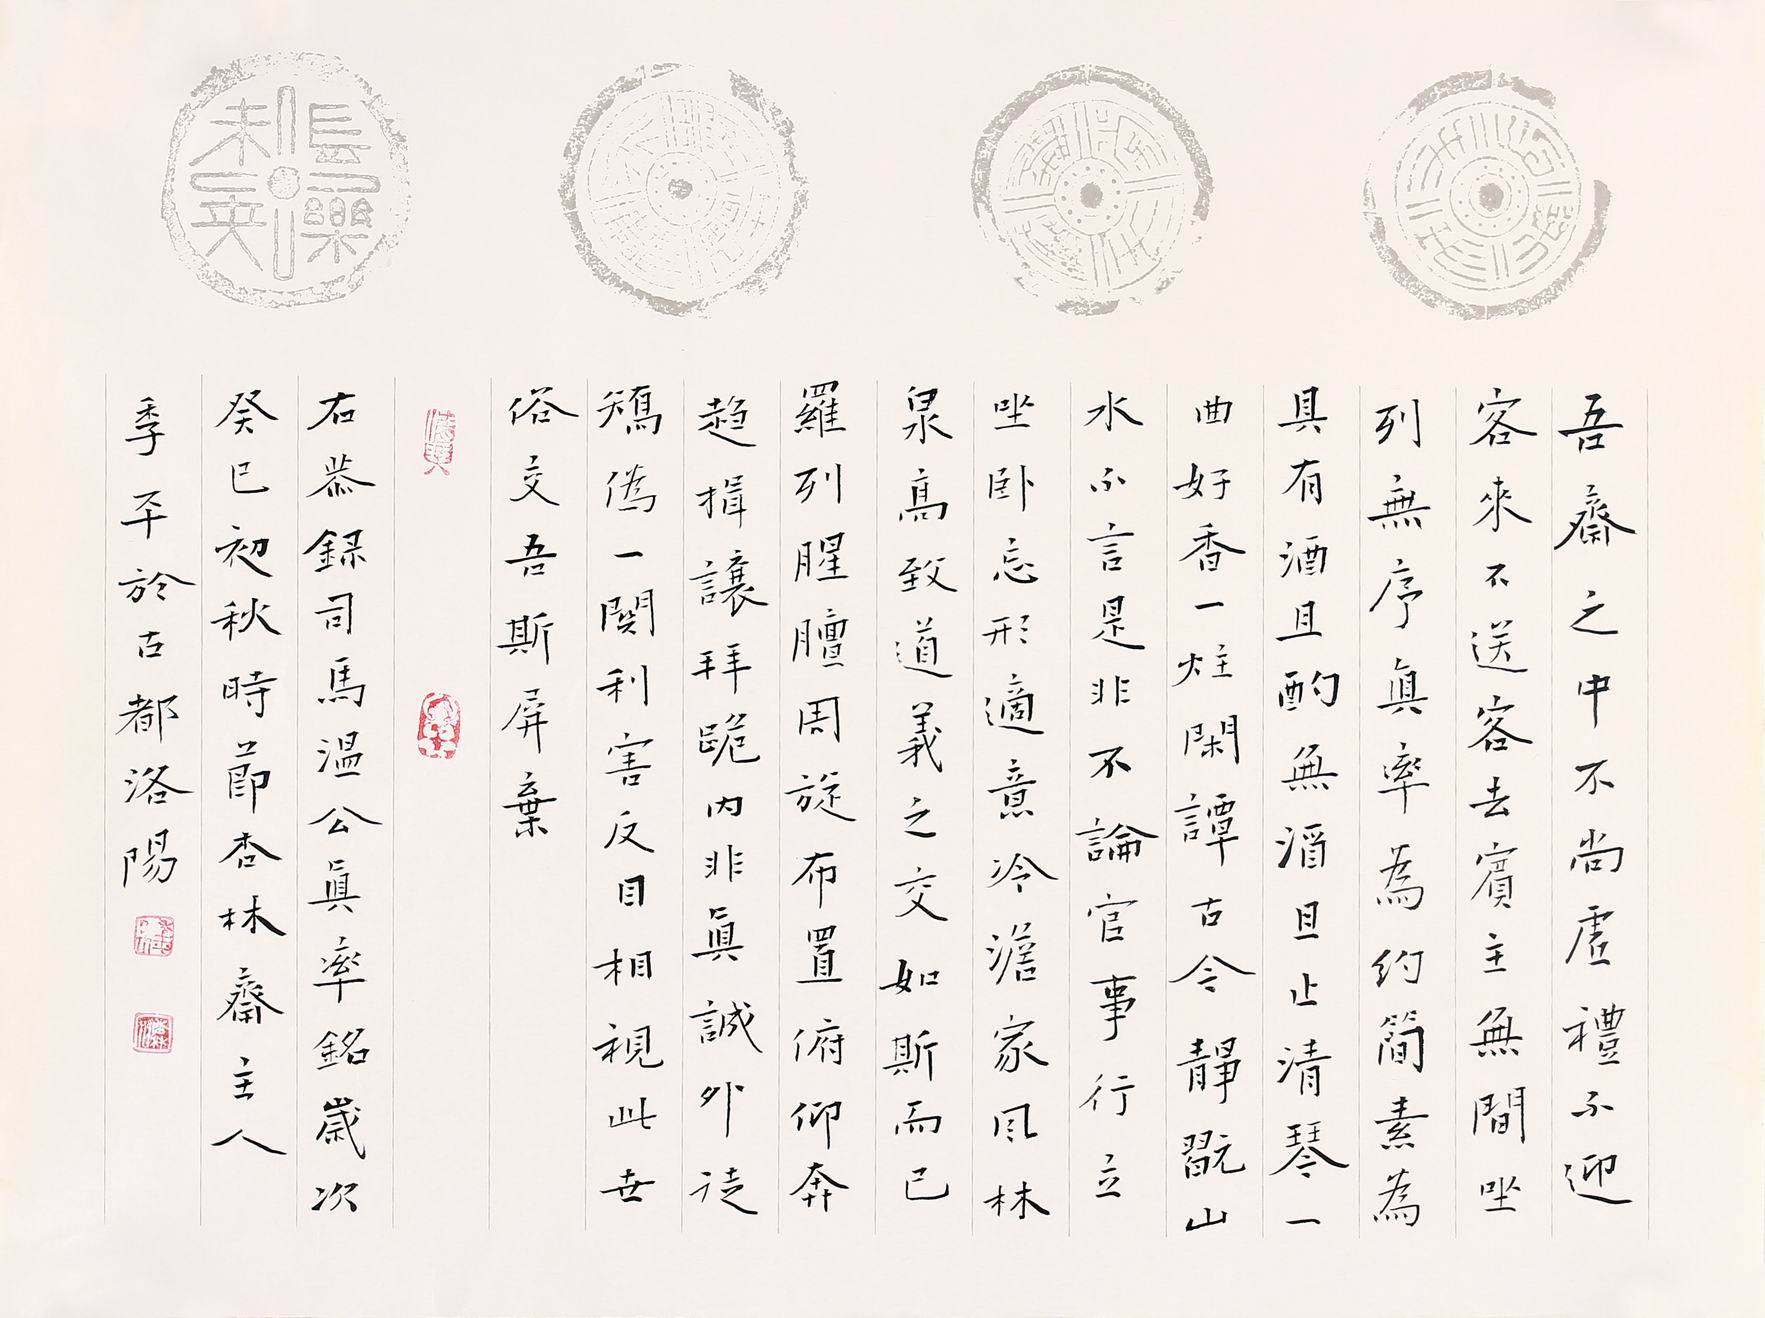 長樂未央
吾齋之中不尚虛禮不迎
客來不送客去賓主無間坐
列無序眞率為約簡素為
具有酒且酌無酒且止清琴一
曲好香一炷閑譚古今靜翫山
水不言是非不論官事行立
坐卧忘形適意冷澹家風林
泉高致道義之交如斯而已
羅列腥膻周旋布置俯仰奔
趨揖讓拜跪內非眞誠外徒
矯偽一関利害反目相視此世
俗交吾斯屏棄
右恭錄司馬溫公眞率銘歲次
癸巳初秋時節杏林齋主人
季平於古都洛陽